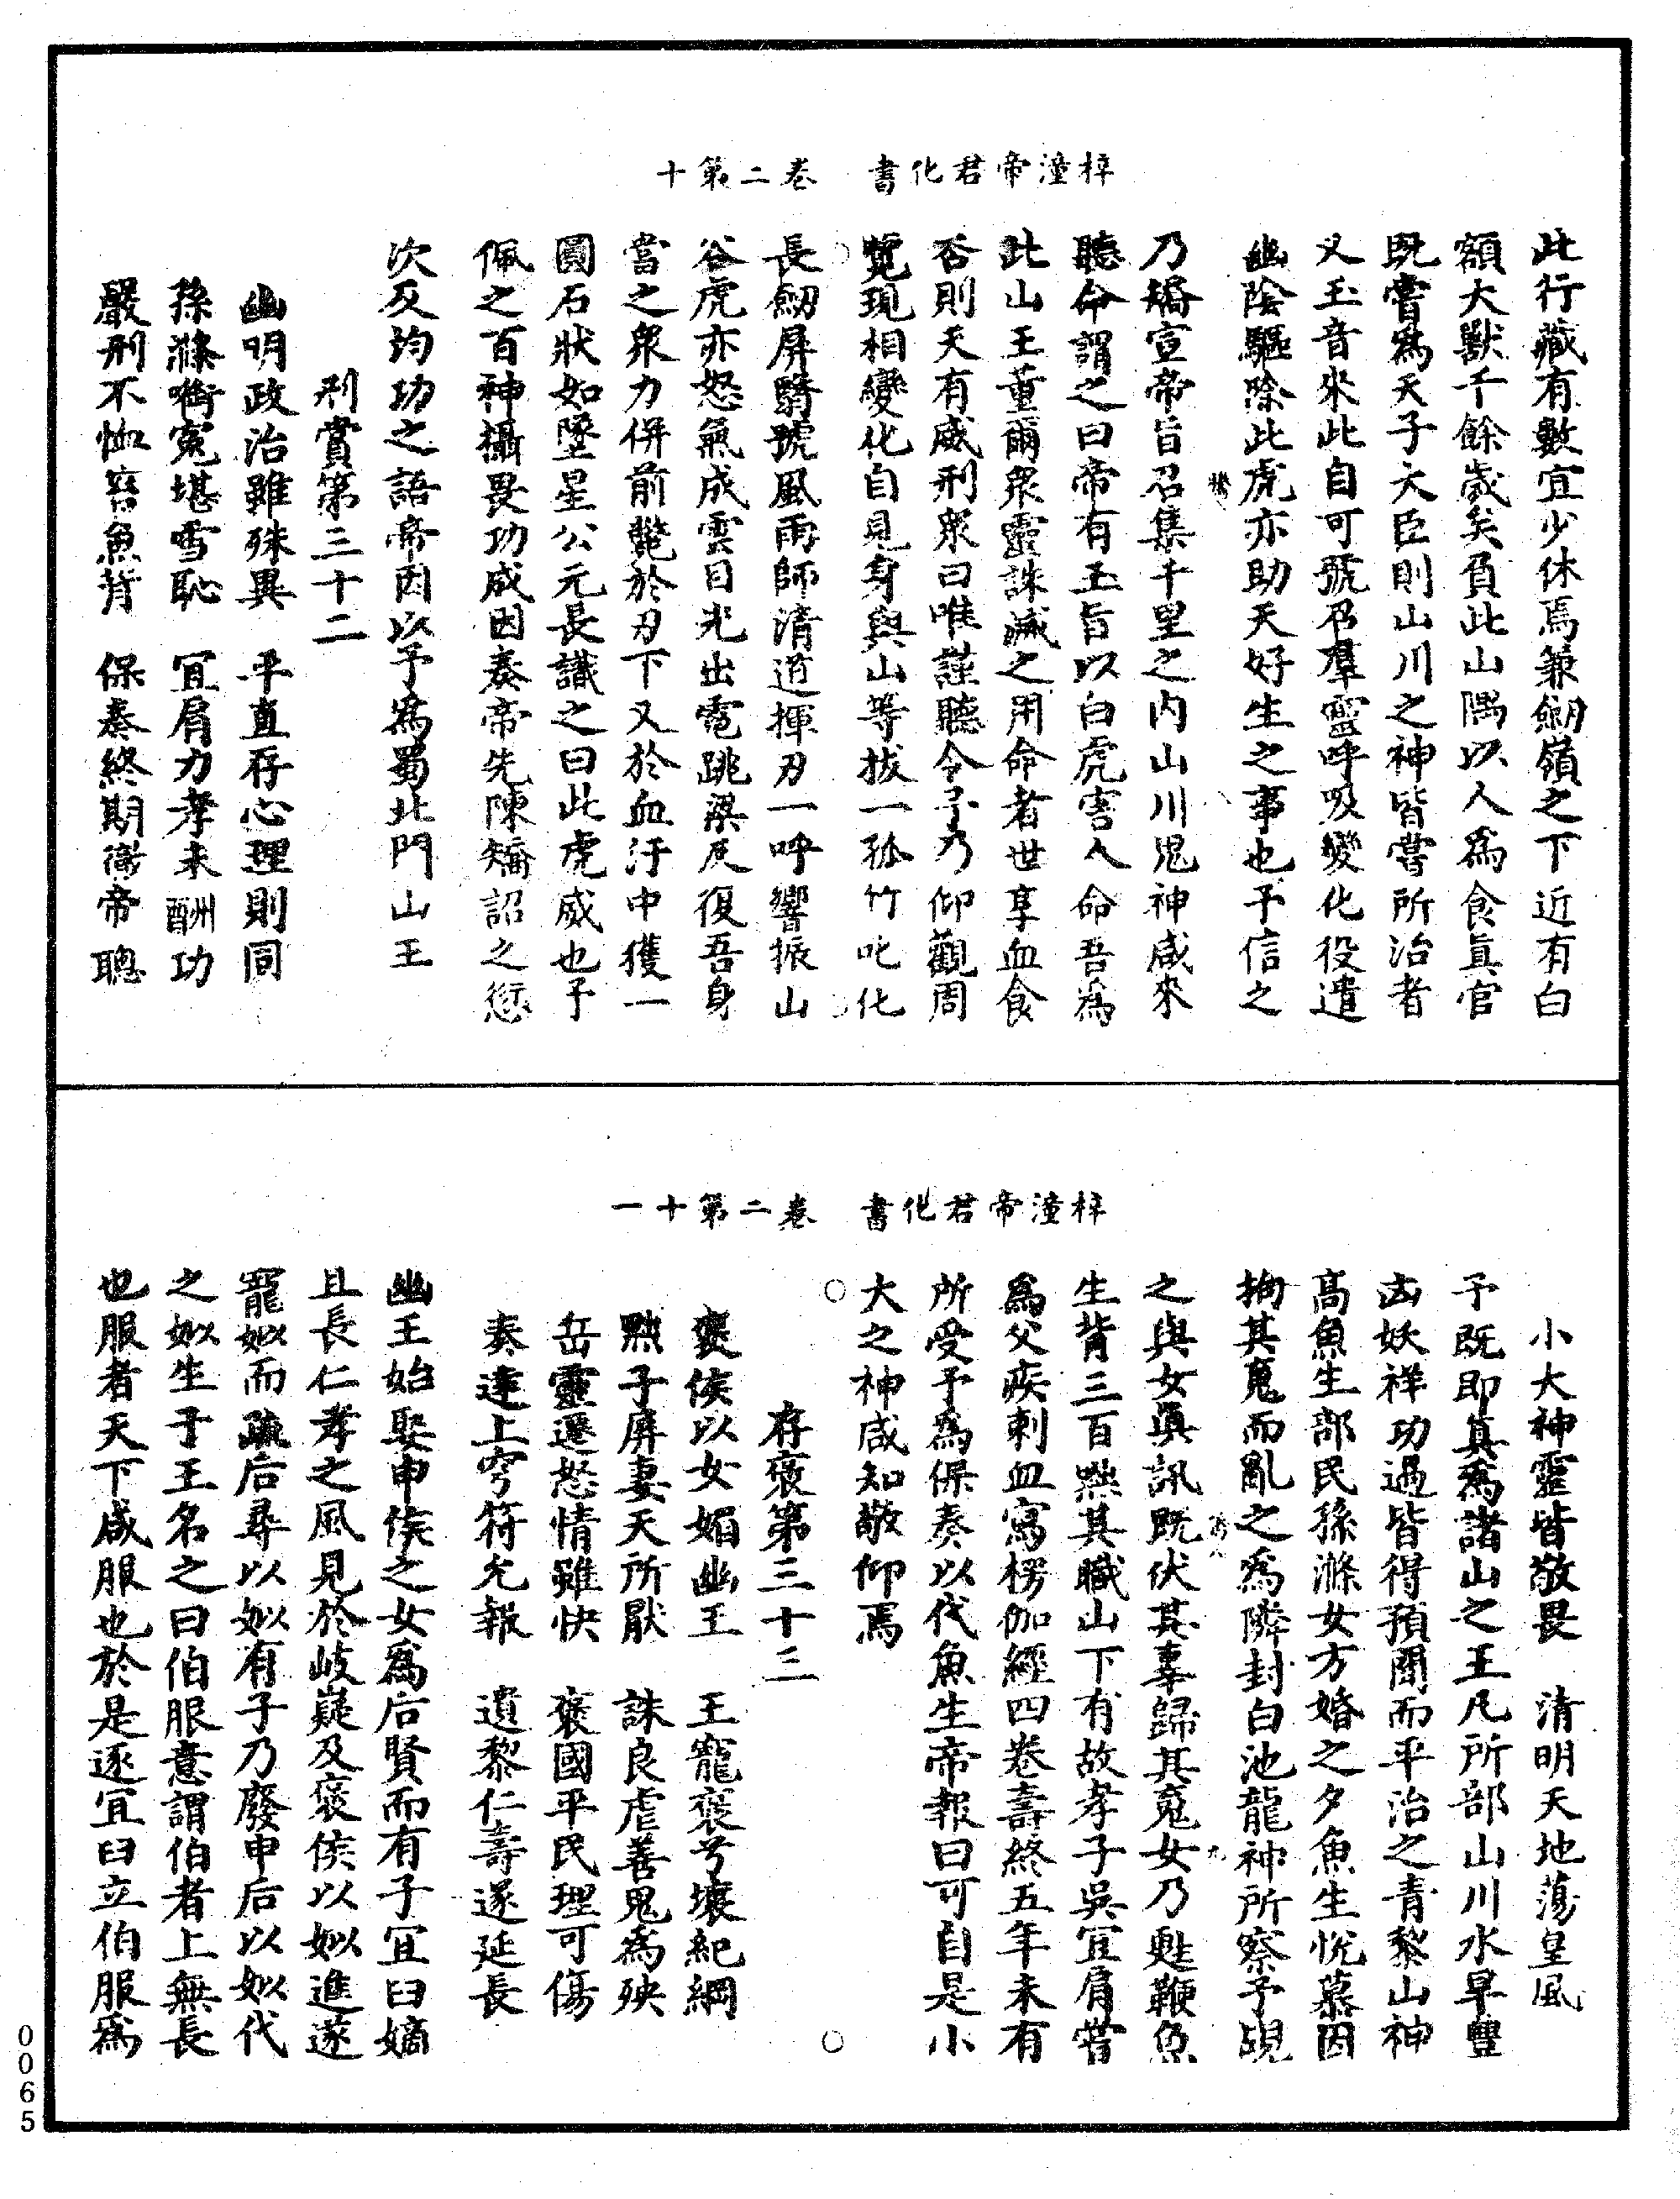 梓潼帝君化書　卷二第十
此行藏有數宜少休焉兼劒嶺之下近有白
額大獸千餘歲矣負此山隅以人爲食眞官
既嘗爲天子大臣則山川之神皆嘗所治者
又玉音來此自可號召羣靈呼吸變化役遣
幽陰驅除此虎亦助天好生之事也予信之
乃矯宣帝旨召集千里之内山川鬼神咸來
聽命謂之曰帝有玉旨以白虎害人命吾爲
此山王董爾衆靈誅滅之用命者世享血食
否則天有威刑衆曰唯謹聽令予乃仰觀周
覽現相變化自見身與山等拔一孤竹叱化
長劒屏翳號風雨師清道揮刃一呼響振山
谷虎亦怒氣成雲目光出電跳梁反復吾身
當之衆力併前斃於刃下又於血汙中獲一
圓石狀如墜星公元長識之曰此虎威也予
佩之百神攝畏功成因奏帝先陳矯詔之愆
次及均功之語帝因以予爲蜀北門山王
刑賞第三十二
幽明政治雖殊異　平直存心理則同
孫滌銜寃堪雪恥　宜肩力孝未酬功
嚴刑不恤笞魚背　保奏終期徹帝聰
梓潼帝君化書　卷二第十一
小大神靈皆敬畏　清明天地蕩皇風
予既即真爲諸山之王凡所部山川水旱豐
凶妖祥功過皆得預聞而平治之青黎山神
高魚生部民孫滌女方婚之夕魚生悅慕因
拘其䰟而亂之爲隣封白池龍神所察予覘
之與女眞訊既伏其辜歸其䰟女乃甦鞭魚
生背三百黜其職山下有故孝子吳宜肩嘗
爲父疾刺血寫楞伽經四卷壽終五年未有
所受予爲保奏以代魚生帝報曰可自是小
大之神咸知敬仰焉
存褒第三十三
褒侯以女媚幽王　王寵褒兮壞紀綱
黜子屏妻天所厭　誅良虐善鬼爲殃
岳靈遷怒情雖快　褒國平民理可傷
奏達上穹符允報　遺黎仁壽遂延長
幽王始娶申侯之女爲后賢而有子宜臼嫡
且長仁孝之風見於岐嶷及褒侯以姒進遂
寵姒而疏后尋以姒有子乃廢申后以姒代
之姒生子王名之曰伯服意謂伯者上無長
也服者天下咸服也於是逐宜臼立伯服爲
0065